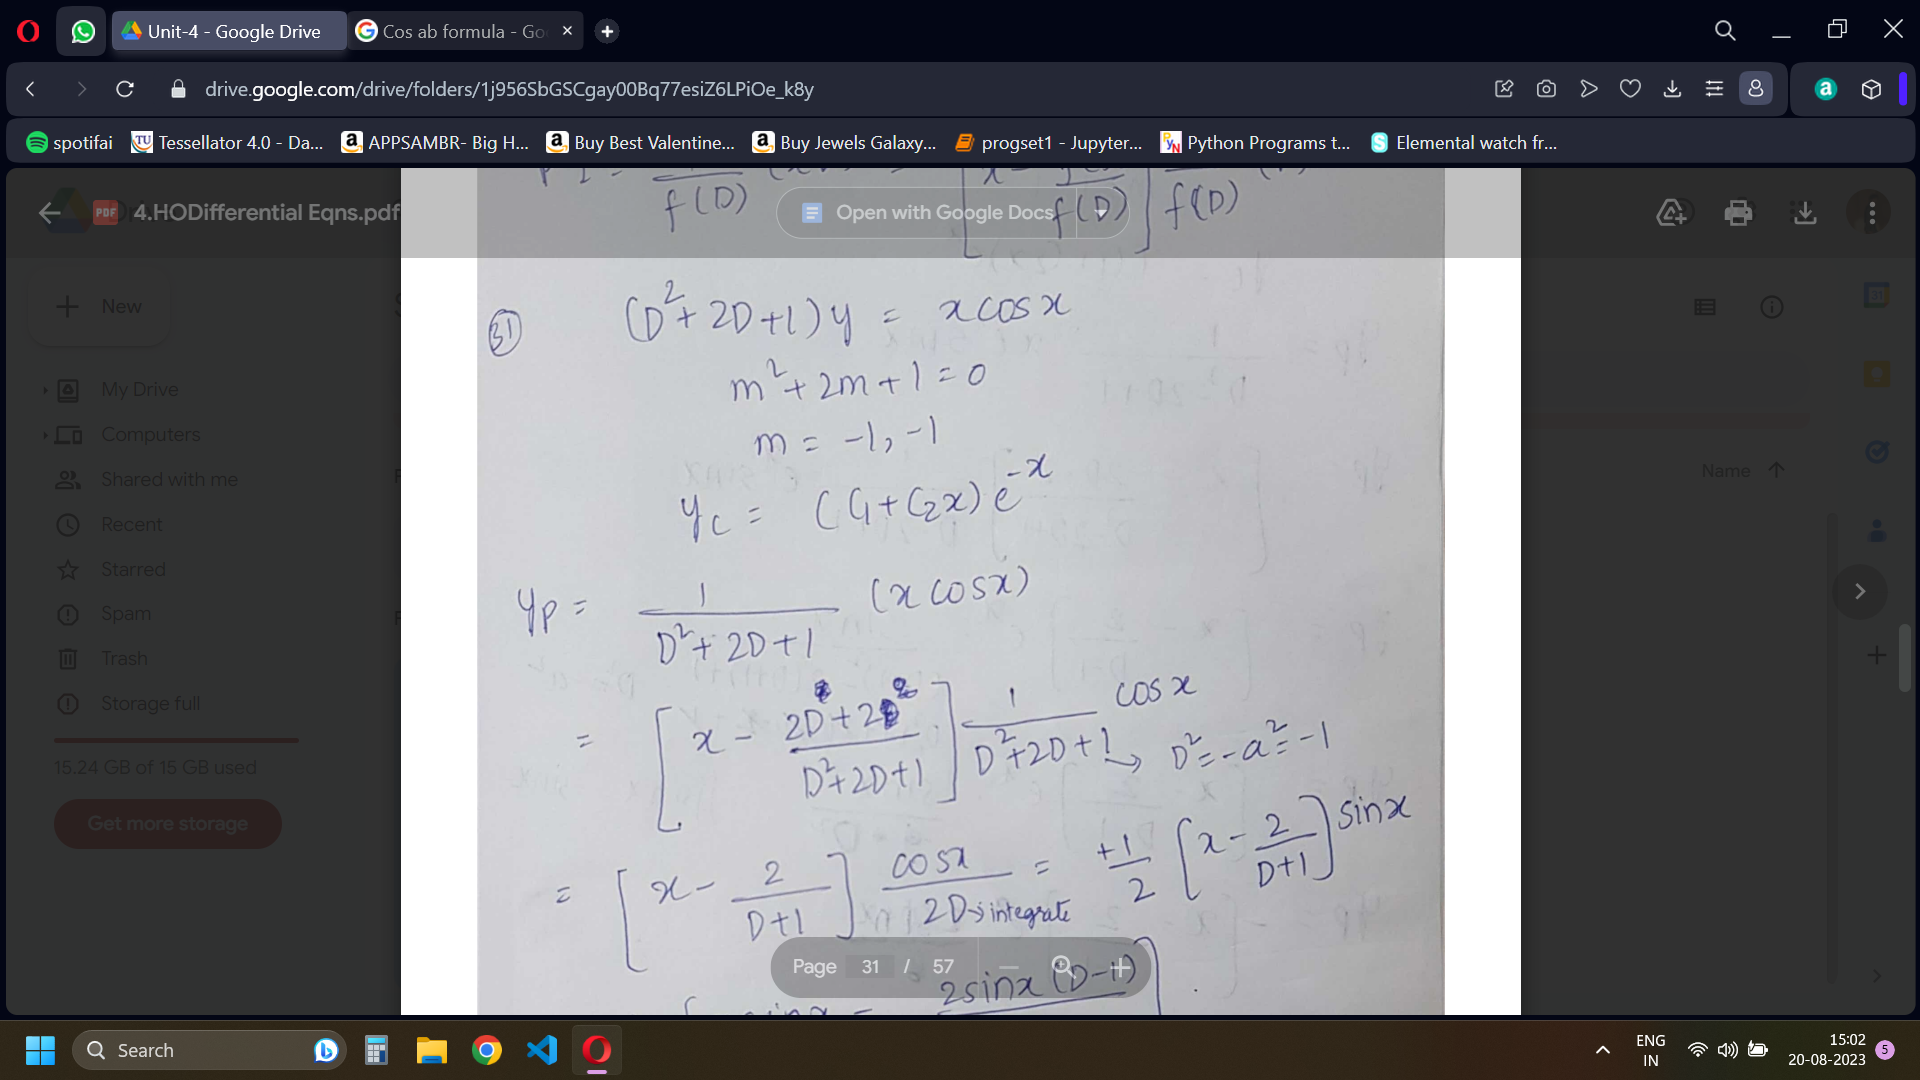 Unit-4 - Google Drive
Cos ab formula - Go
drive.google.com/drive/folders/1j956SbGSCgay00Bq77esiZ6LPiOe_k8y
spotifai
Tessellator 4.0 - Da...
APPSAMBR- Big H...
Buy Best Valentine...
Buy Jewels Galaxy...
progset1 - Jupyter...
Python Programs t...
Elemental watch fr...
PDF 4.HODifferential Eqns.pdf
Open with Google Docs
f(D) f(D) f(D)
New
My Drive
Computers
Shared with me
Recent
Starred
Spam
Trash
Storage full
15.24 GB of 15 GB used
Get more storage
Name
31 (D²+2D+1)y = x cos x
m²+2m+1=0
m = -1, -1
y_c = (C₁+C₂x) e^-x
y_p = 1/(D²+2D+1) (x cos x)
= [x - (2D+2)/(D²+2D+1)] 1/(D²+2D+1) cos x → D²=-a²=-1
= [x - 2/(D+1)] cosx/2D → integrate = +1/2 [x - 2/(D+1)] sin x
2sinx (D-1)
Page 31 / 57
Search
ENG
IN
15:02
20-08-2023
5